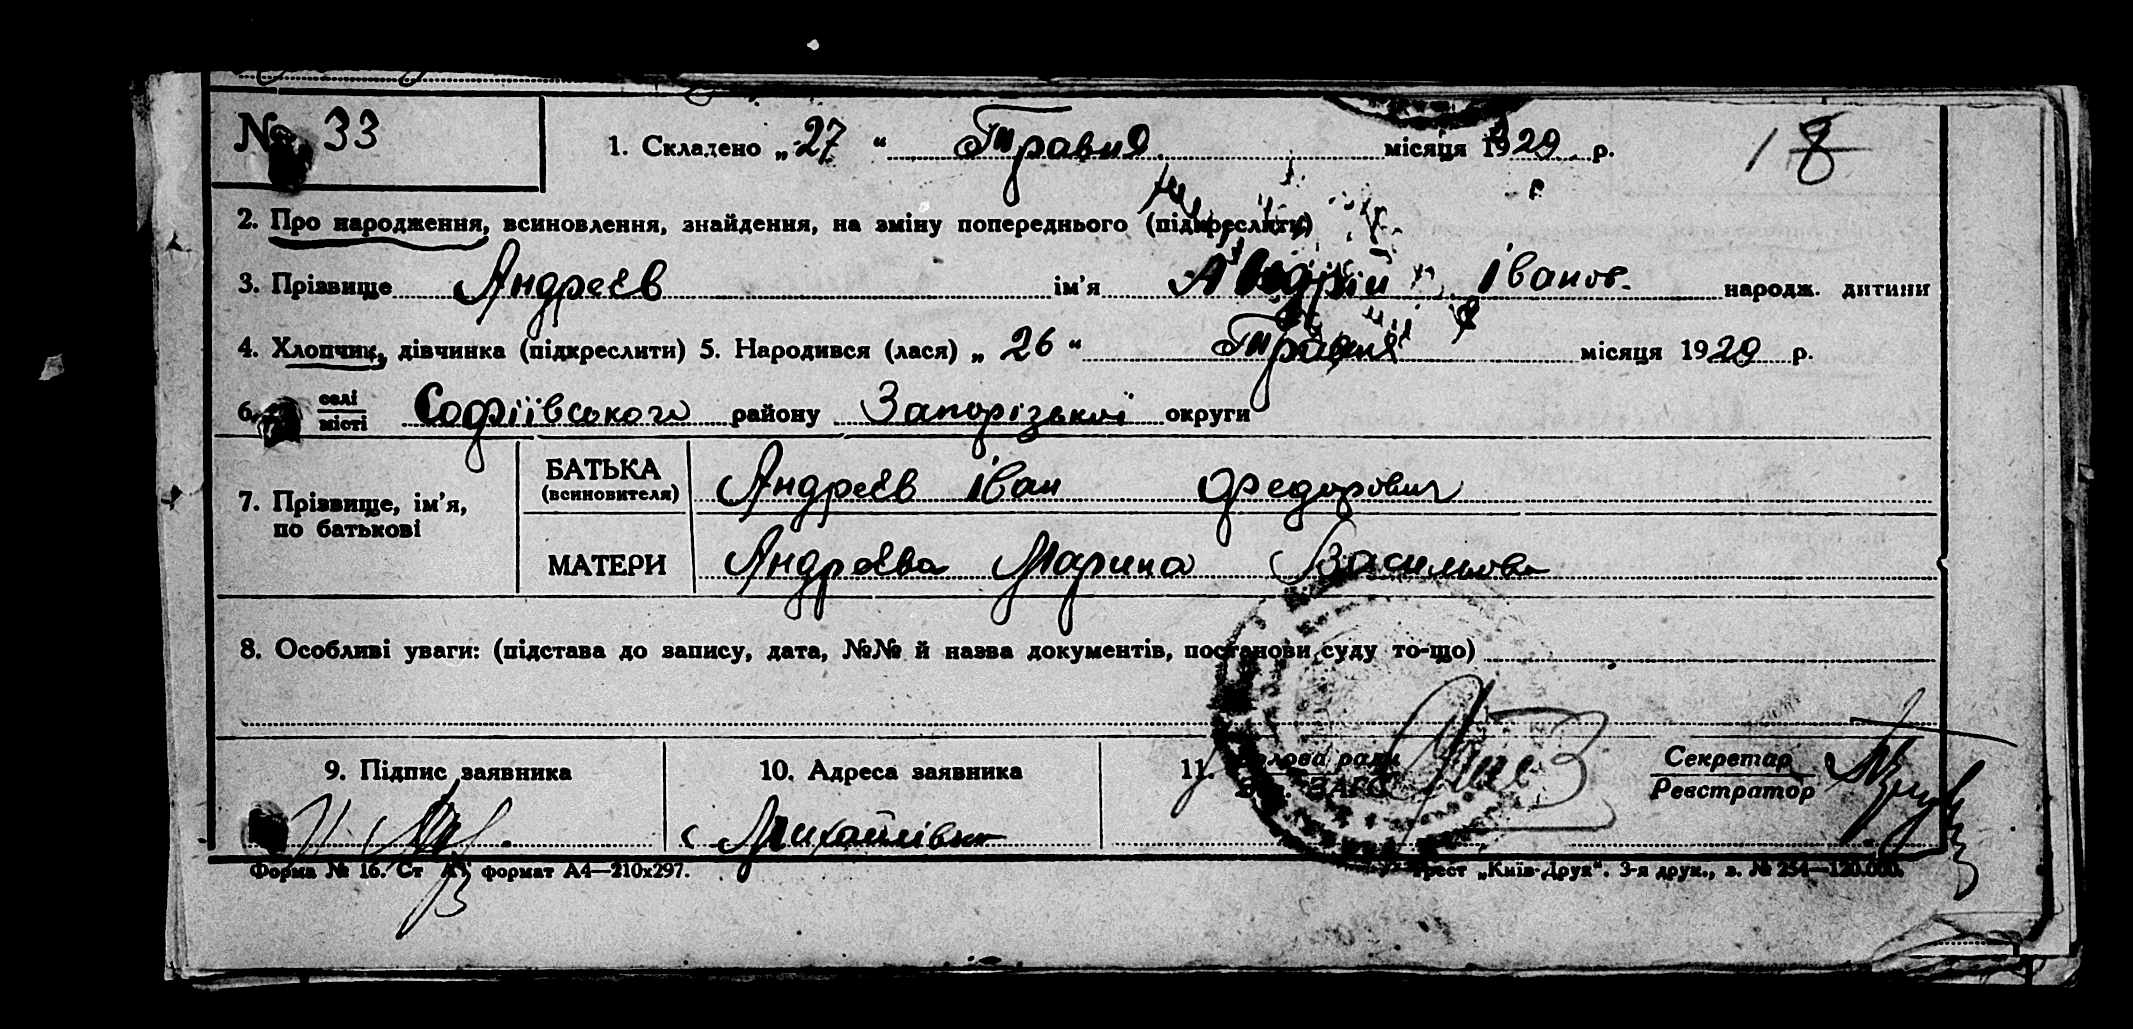 № 33
1. Складено „ 27 “ Травня місяця 1929 р. 18
2. Про народження, всиновлення, знайдення, на зміну попереднього (підкреслити)
3. Прізвище Андреєв ім'я Андрій Іванов. народж. дитини
4. Хлопчик, дівчинка (підкреслити) 5. Народився (лася) „ 26 “ Травня місяця 1929 р.
6. селі
місті Софіївського району Запорізької округи
7. Прізвище, ім'я, по батькові
БАТЬКА (всиновителя) Андреєв Іван Федорович
МАТЕРИ Андреєва Марина Василівна
8. Особливі уваги: (підстава до запису, дата, №№ й назва документів, постанови суду то-що)
9. Підпис заявника
10. Адреса заявника
с Михайлівка
11. Голова ради
Зав. ЗАГС
Секретар
Реєстратор
Форма № 16. Ст А4 формат А4—210х297.
Трест „Київ-Друк“. 3-я друк., з. № 254—120.000.